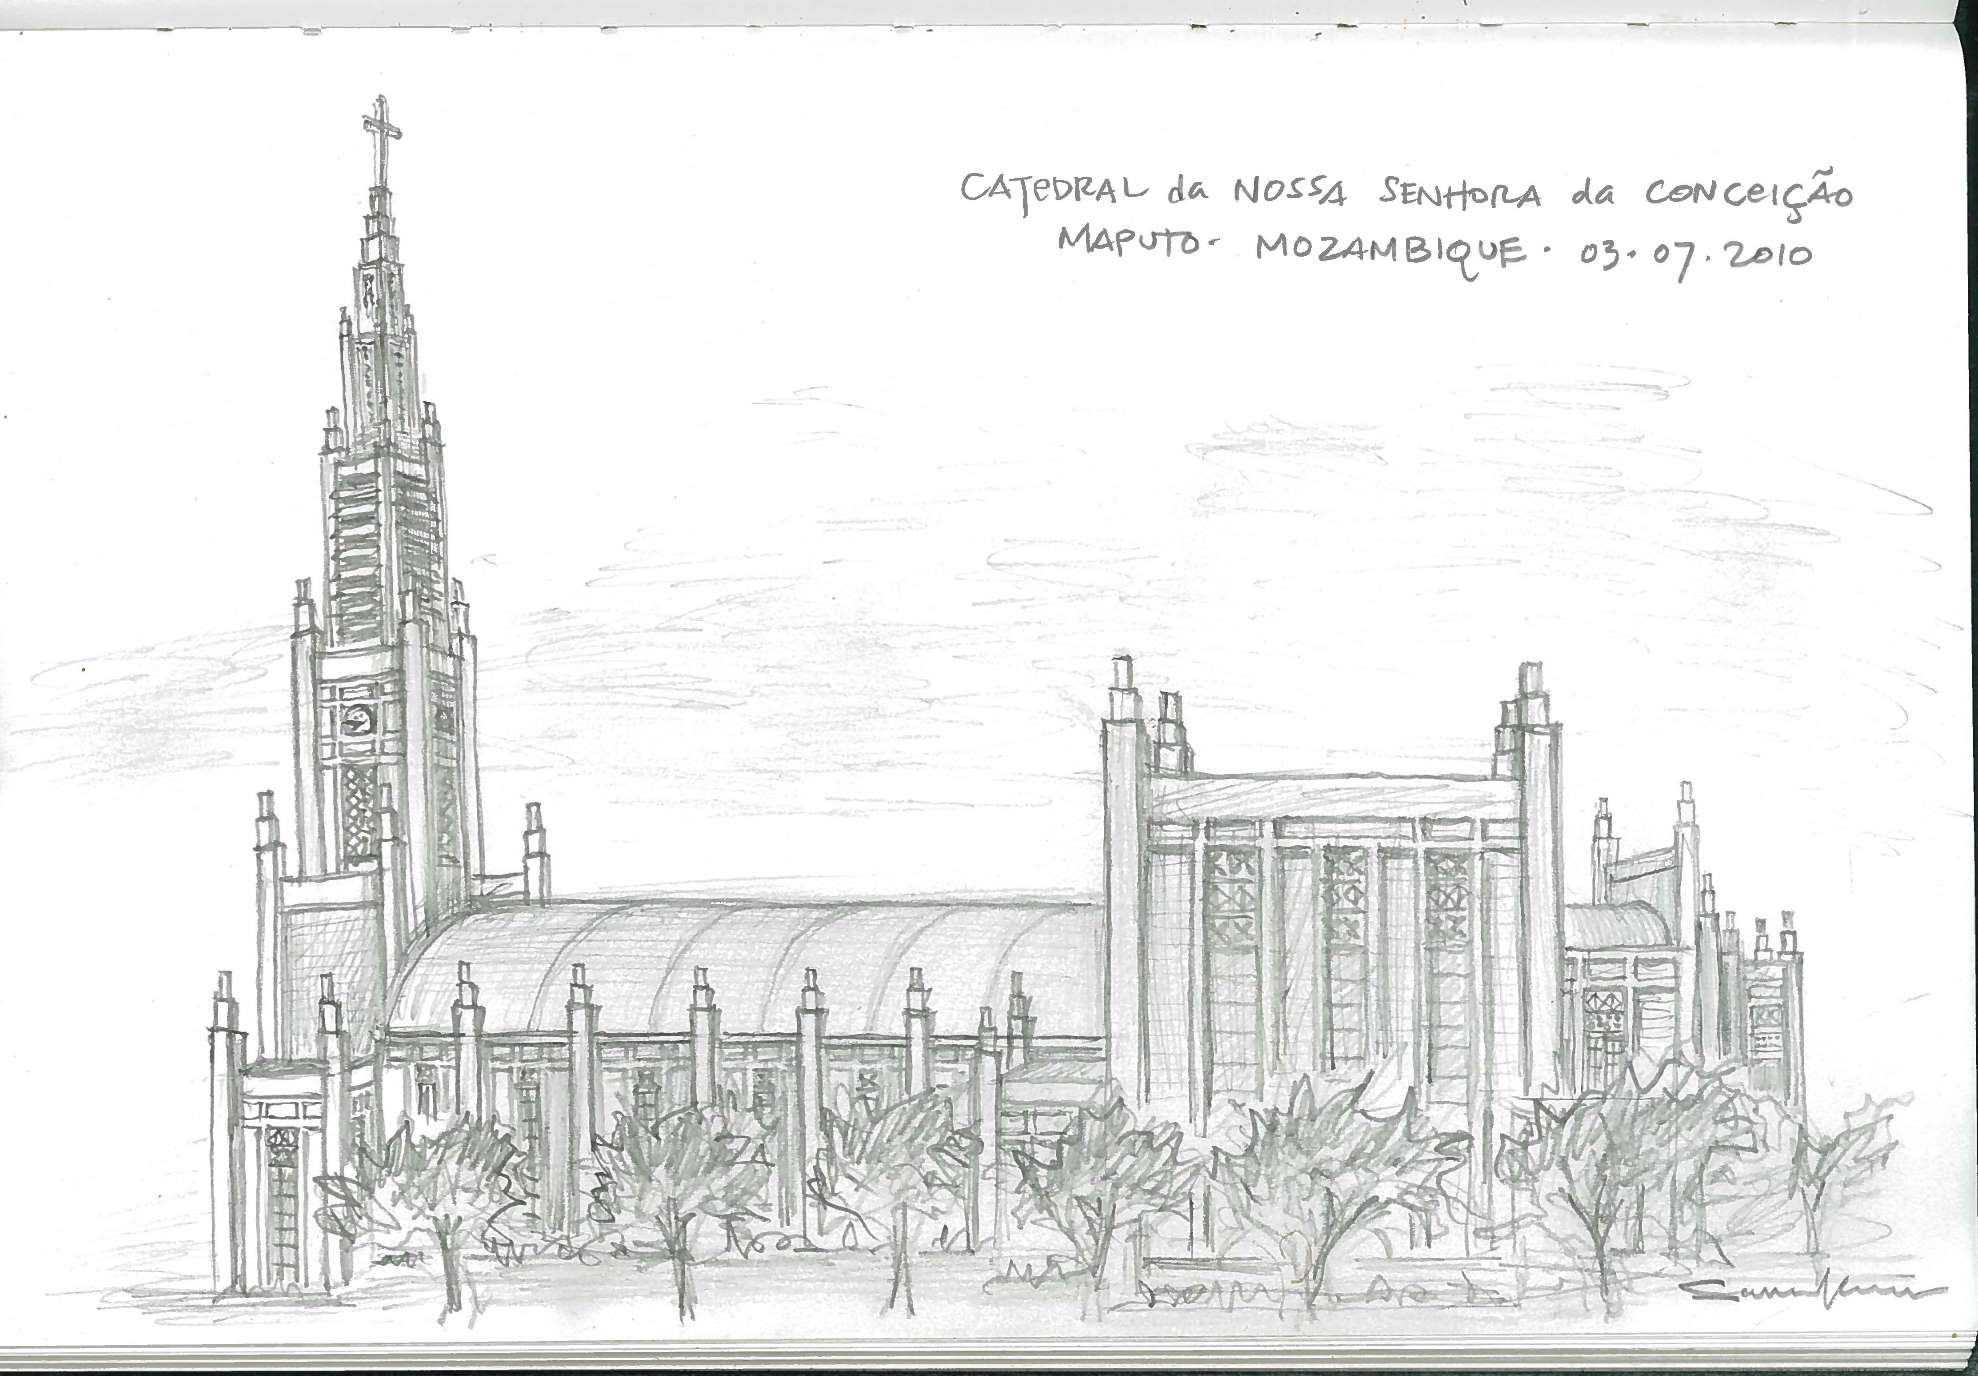 CATEDRAL da NOSSA SENHORA da CONCEIÇÃO
MAPUTO - MOZAMBIQUE. 03.07.2010